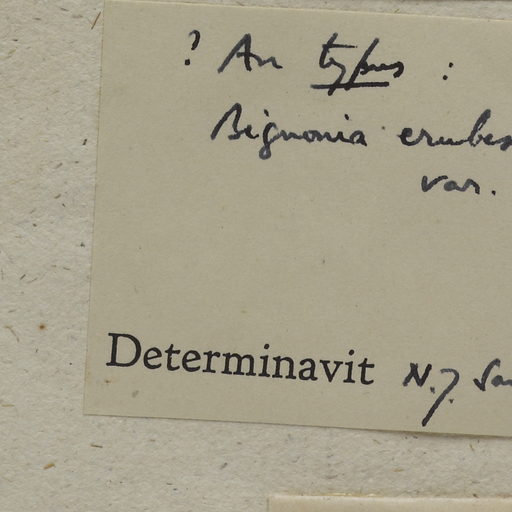 ? An typus :
Bignonia erubes
var.
Determinavit N.J. San